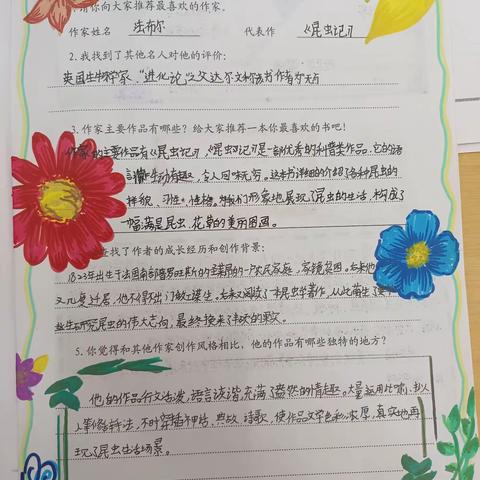 请你向大家推荐最喜欢的作家。
作家姓名 法布尔 代表作 《昆虫记》
2.我找到了其他名人对他的评价:
英国生物学家、"进化论"之父达尔文
3.作家主要作品有哪些?给大家推荐一本你最喜欢的书吧!
作家的主要作品有《昆虫记》,《昆虫记》是一部优秀的科普类作品,它的语
言生动有趣,令人回味无穷。这本书详细的介绍了各种昆虫的
样貌、习性、性格。形象地展现了昆虫的生活,构成了
一幅满是昆虫、花草的美丽图画。
找了作者的成长经历和创作背景:
1823年出生于法国南部普罗旺斯的圣莱昂的一次民家庭,家境贫困。
又几复过后,他不得不出门做工谋生。后来又阅读了一本昆虫学著作,从此萌生了
业生研究昆虫的伟大志向,最终换来了丰硕的果实。
5.你觉得和其他作家创作风格相比,他的作品有哪些独特的地方?
他的作品行文活泼,语言诙谐,充满了盎然的情趣。大量运用比喻、拟
人等修辞手法,不时穿插神话、典故、诗歌,使作品文学色彩浓厚,真实地再
现了昆虫生活场景。